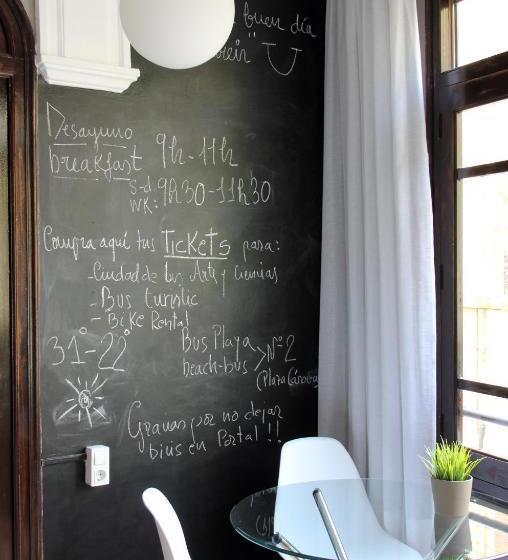 buen día
reir"
Desayuno
breakfast 9h-11h
S-d. 9h30-11h30
WK:
Compra aquí tus TICKETS para:
-Ciudad de las Arts y ciencias
-Bus turistic
-Bike Rental
31°-22°
Bus Playa
beach-bus > Nº2
(Plaza Cánovas
Gracias por no dejar
bicis en Portal!!